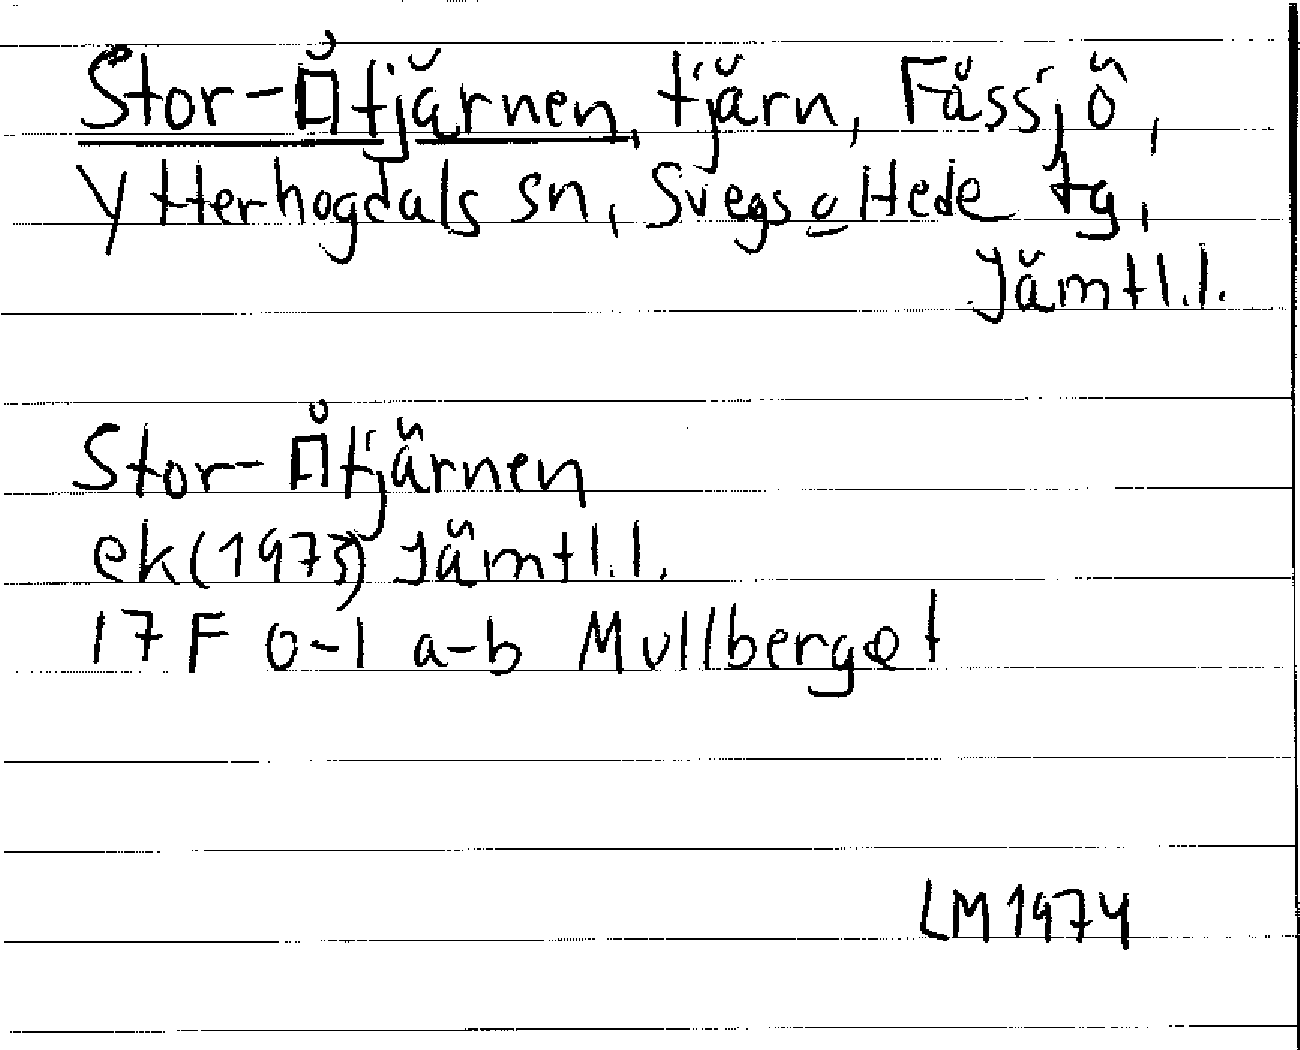 Stor-Åtjärnen, tjärn, Fåssjö,
Ytterhogdals sn, Svegs o Hede tg,
Jämtl.l.
Stor-Åtjärnen
ek(1973) Jämtl.l.
17F 0-1 a-b Mullberget
LM 1974